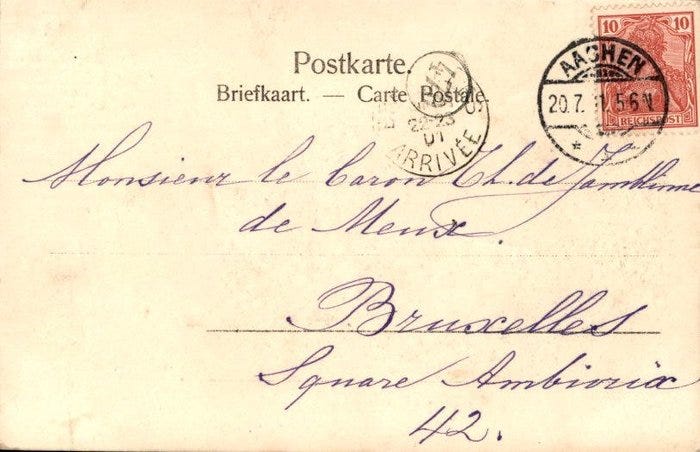 Postkarte.
Briefkaart. — Carte Postale.
10 10
REICHSPOST
AACHEN
20.7. 5-6 N
22-23
01
ARRIVÉE
Monsieur le Baron Th. de Jamblinne
de Meux.
Bruxelles
Square Ambiorix
42.